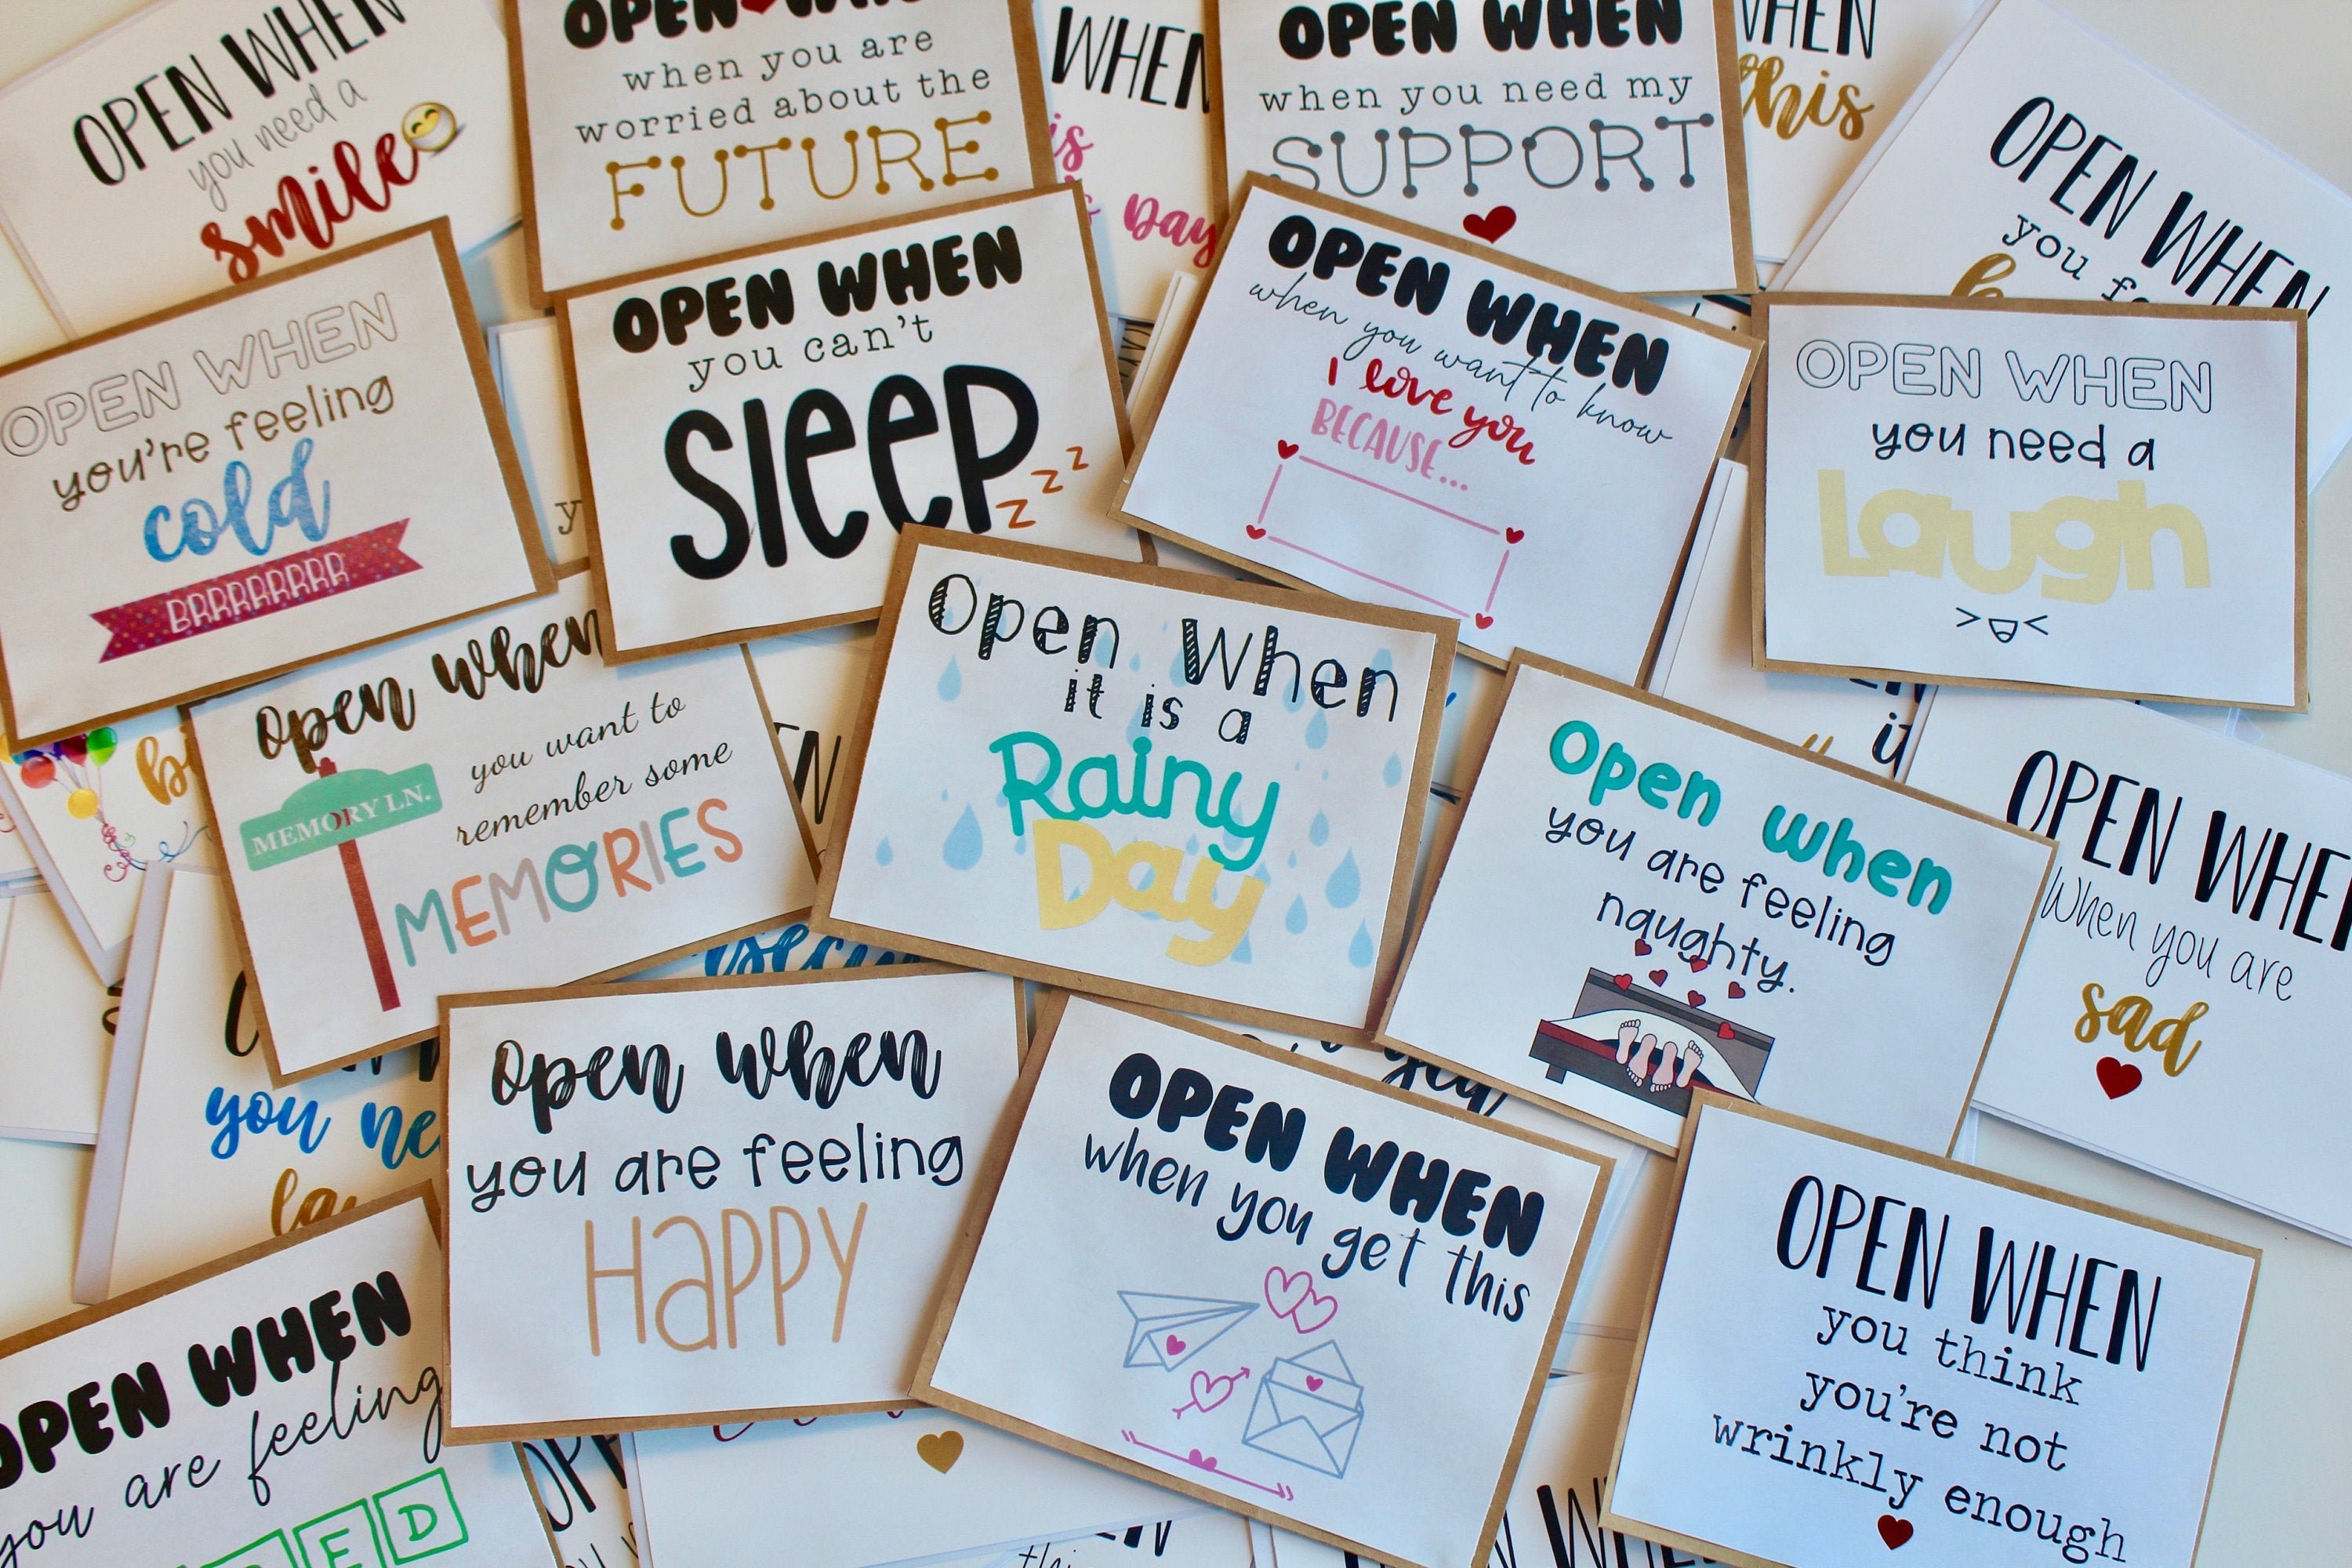 OPEN WHEN
you need a
smile
OPEN WHEN
when you are
worried about the
FUTURE
WHEN
is
Day
OPEN WHEN
when you need my
SUPPORT
WHEN
this
OPEN WHEN
you
OPEN WHEN
you're feeling
cold
BRRRRRRR
OPEN WHEN
you can't
Sleep
z z z
OPEN WHEN
when you want to know
I love you
BECAUSE...
OPEN WHEN
you need a
Laugh
open when
you want to
remember some
MEMORIES
MEMORY LN.
Open When
it is a
Rainy
Day
Open when
you are feeling
naughty.
OPEN WHEN
When you are
sad
you
open when
you are feeling
HAPPY
OPEN WHEN
when you get this
OPEN WHEN
you think
you're not
wrinkly enough
OPEN WHEN
you are feeling
ED